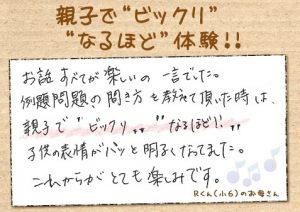 親子で“ビックリ”
“なるほど”体験!!
お話すべてが楽しいの一言でした。
例題問題の聞き方を教えて頂いた時は、
親子で“ビックリ”“なるほど!”
子供の表情がパッと明るくなってました。
これからがとても楽しみです。
Rくん(小6)のお母さん